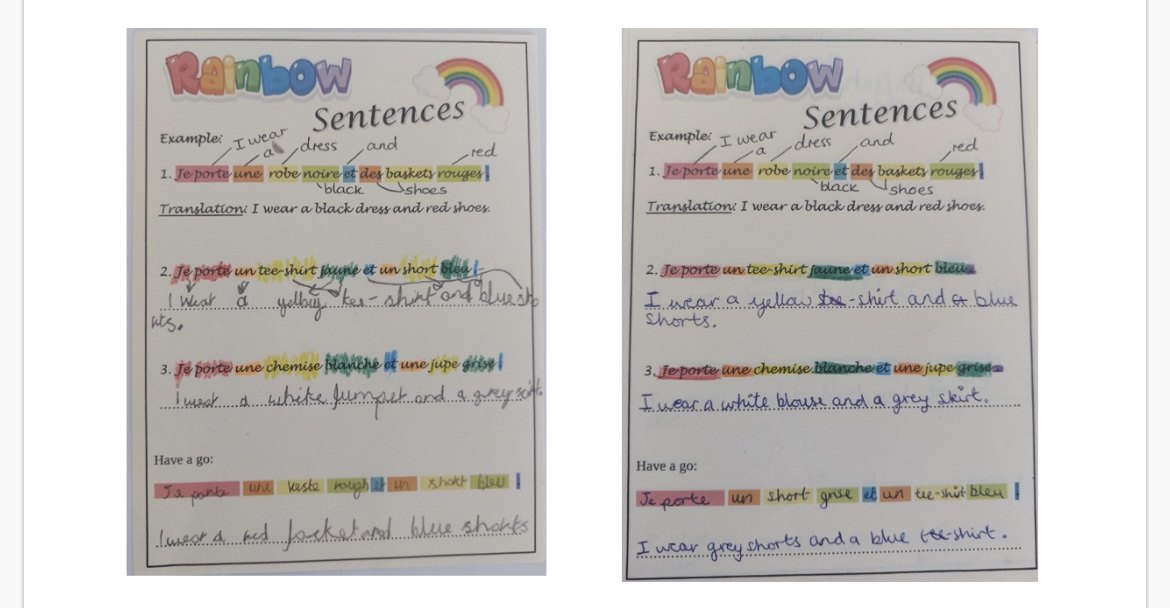 RAINBOW
Sentences
Example: I wear
a dress and red
1. Je porte une robe noire et des baskets rouges!
black shoes
Translation: I wear a black dress and red shoes.
2. Je porte un tee-shirt jaune et un short bleu!
I wear a yellow tee-shirt and blue sho
rts.
3. Je porte une chemise blanche et une jupe grise!
I wear a white jumper and a grey
Have a go:
Je porte une veste rough et un short bleu !
I wear a red jacket and blue shorts
RAINBOW
Sentences
Example: I wear
a dress and red
1. Je porte une robe noire et des baskets rouges!
black shoes
Translation: I wear a black dress and red shoes.
2. Je porte un tee-shirt jaune et un short bleu.
I wear a yellow -shirt and blue
shorts.
3. Je porte une chemise blanche et une jupe grise.
I wear a white blouse and a grey skirt.
Have a go:
Je porte un short grise et un tee-shirt bleu !
I wear grey shorts and a blue tee-shirt.